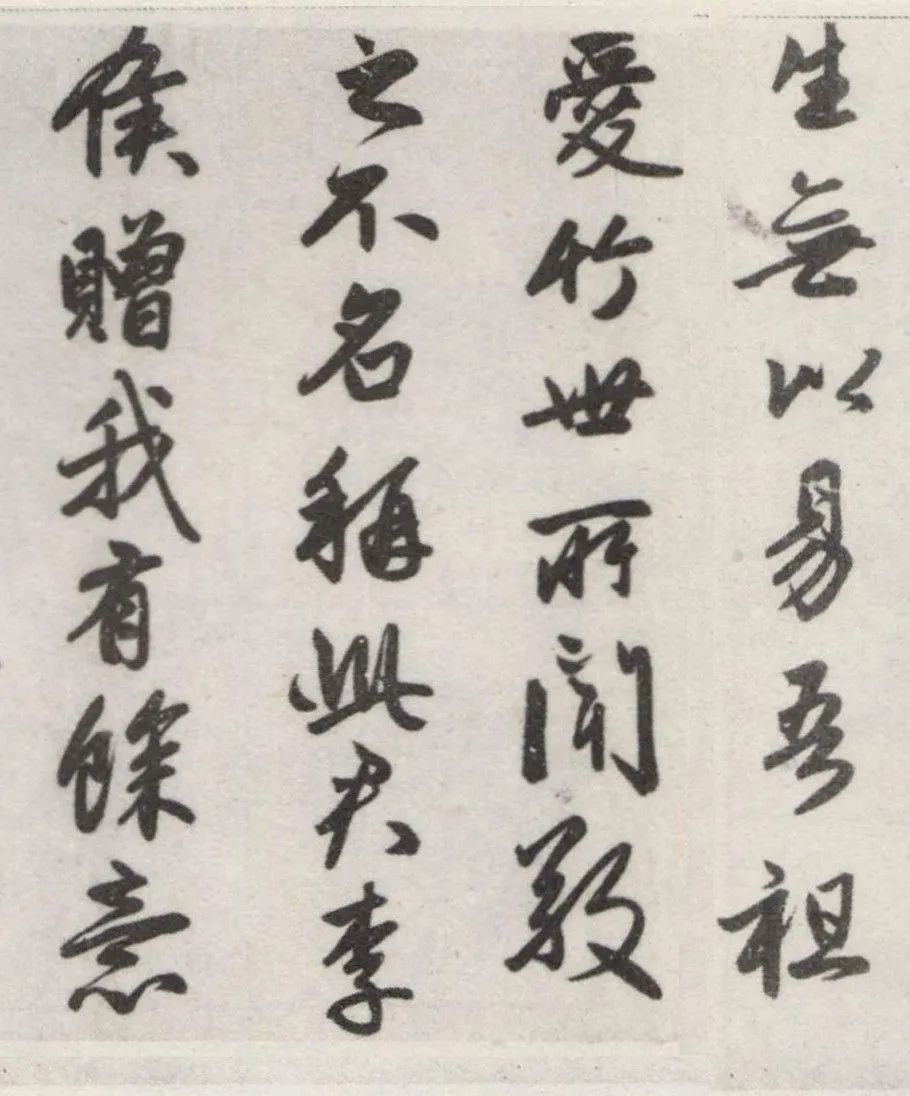 生無以易吾祖
愛竹世所聞敬
之不名稱此君李
侯贈我有餘意